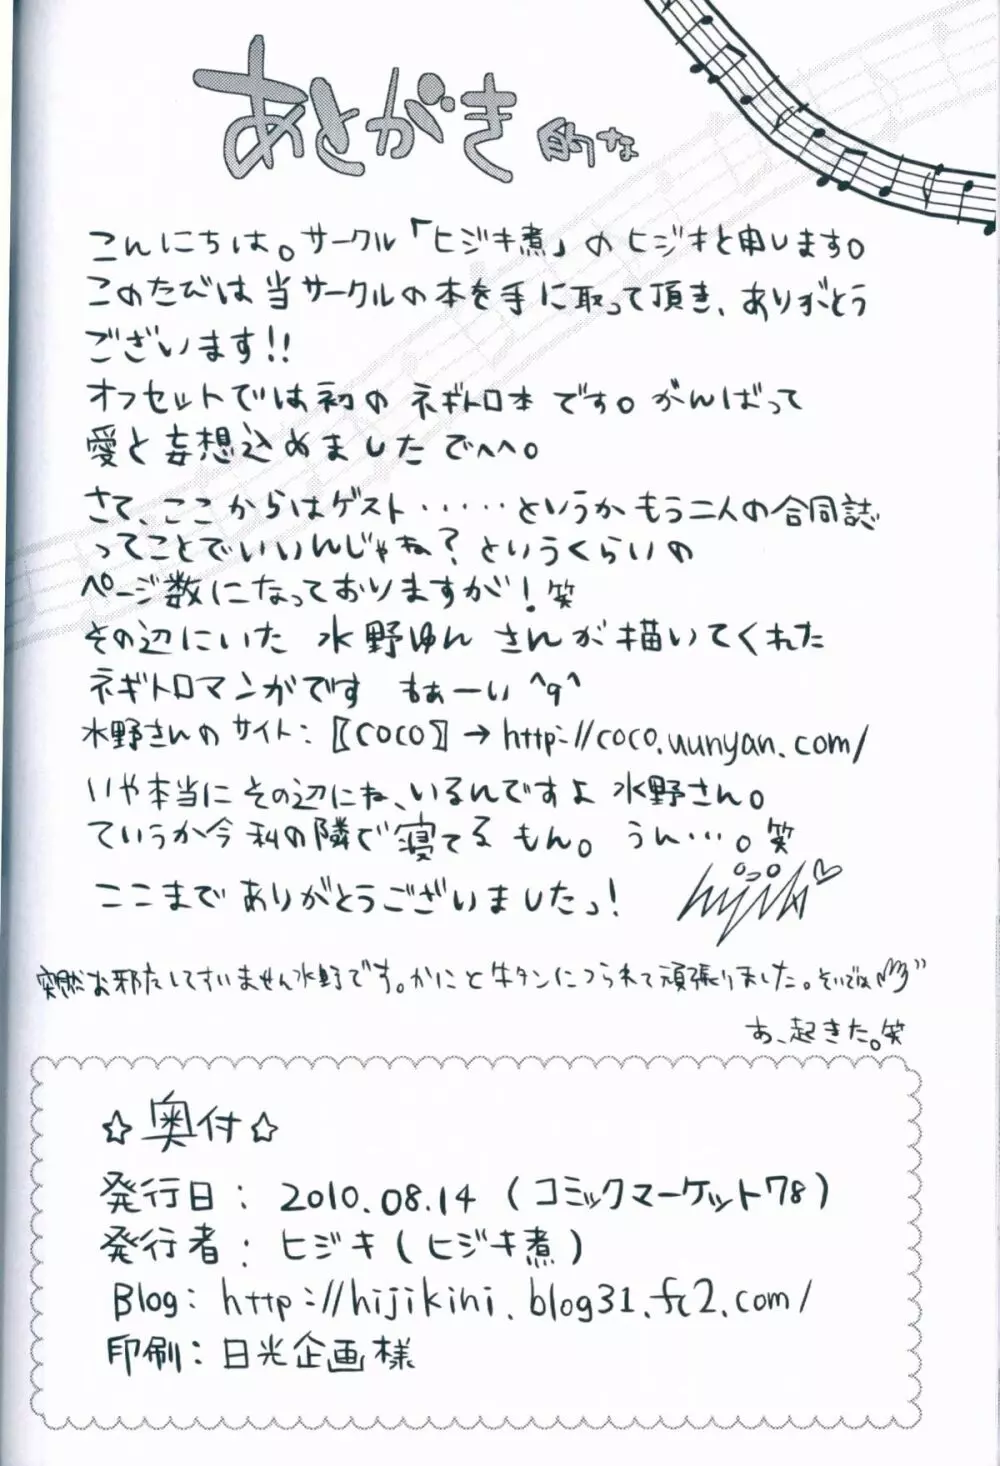 あとがき 的な
こんにちは。サークル「ヒジキ煮」のヒジキと申します。
このたびは当サークルの本を手に取って頂き、ありがとう
ございます!!
オフセットでは初の ネギトロ本 です。がんばって
愛と妄想込めましたでへへ。
さて、ここからはゲスト・・・・・というかもう二人の合同誌
ってことでいいんじゃね?というくらいの
ページ数になっておりますが!笑
その辺にいた 水野ゆん さんが描いてくれた
ネギトロマンガです もぁーい ^q^
水野さんのサイト:〖COCO〗→http://coco.uunyan.com/
いや本当にその辺にね、いるんですよ水野さん。
ていうか今私の隣で寝てるもん。うん…。笑
ここまでありがとうございましたっ!
hijiki♡
突然お邪魔してすいません水野です。かにと牛タンにつられて頑張りました。そいでは
あ、起きた。笑
☆奥付☆
発行日:2010.08.14(コミックマーケット78)
発行者:ヒジキ(ヒジキ煮)
Blog:http://hijikini.blog31.fc2.com/
印刷:日光企画様